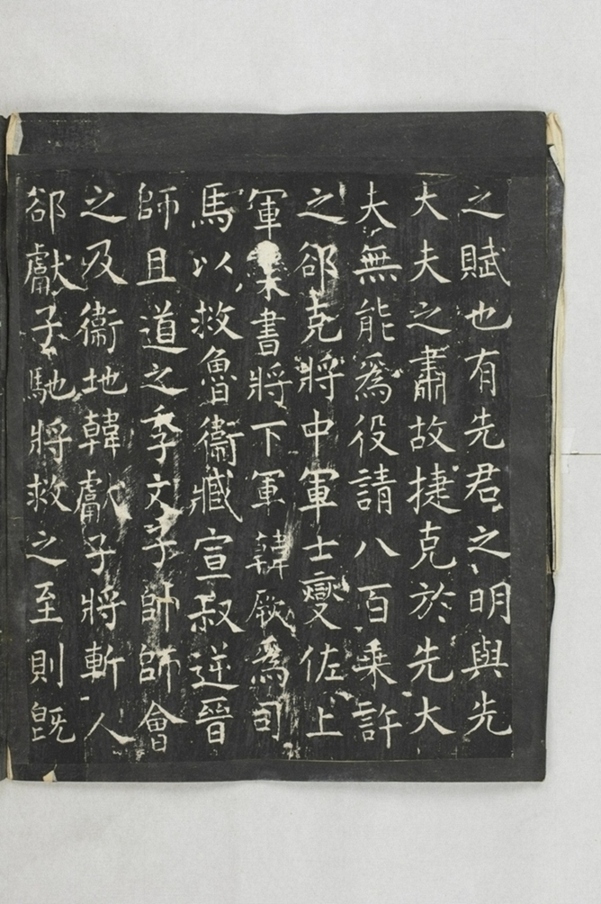 之賦也有先君之明與先
大夫之肅故捷克於先大
夫無能為役請八百乘許
之郤克將中軍士燮佐上
軍欒書將下軍韓厥為司
馬以救魯衛臧宣叔逆晉
師且道之季文子帥師會
之及衛地韓獻子將斬人
郤獻子馳將救之至則既